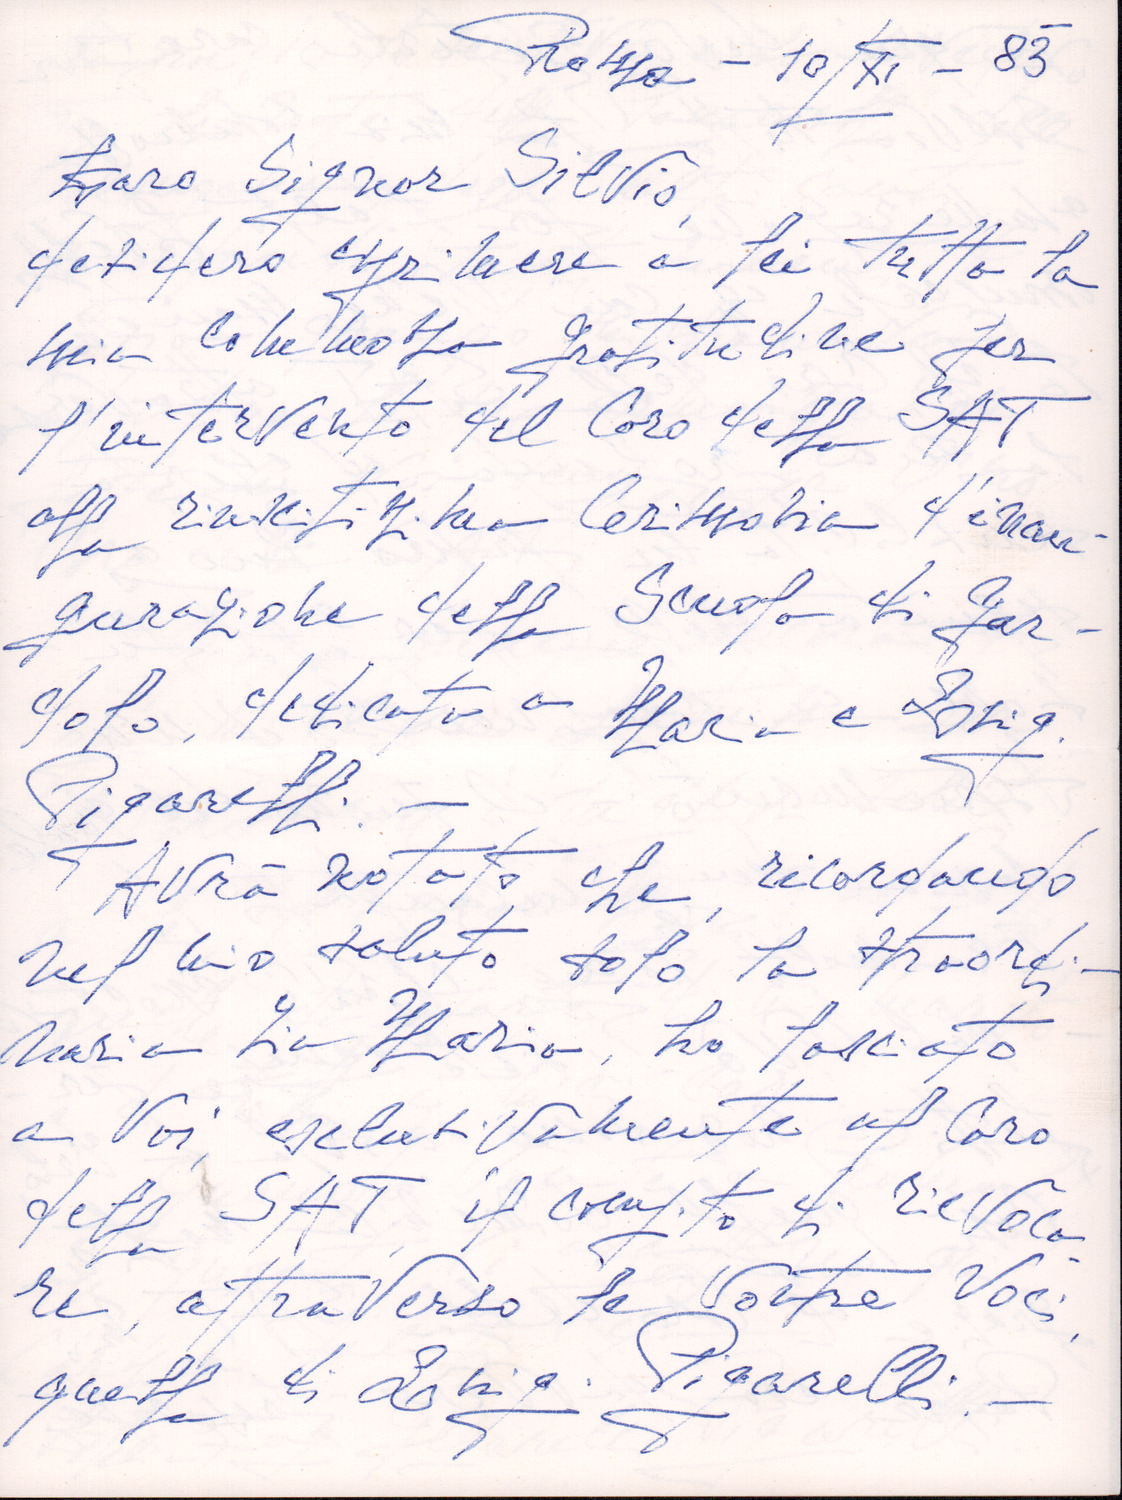 Roma - 10/XI - 83
Caro Signor Silvio,
desidero esprimere a lei tutta la
mia commossa gratitudine per
l'intervento del Coro della SAT
alla riuscitissima Cerimonia d'inau-
gurazione della Scuola di Gar-
dolo, dedicata a Maria e
Pigarelli. -
Avrà notato che, ricordando
nel mio saluto solo la straordi-
naria zia Maria, ho lasciato
a Voi, esclusivamente al Coro
della SAT, il compito di rievoca-
re, attraverso le Vostre Voci,
quella di Pigarelli. -